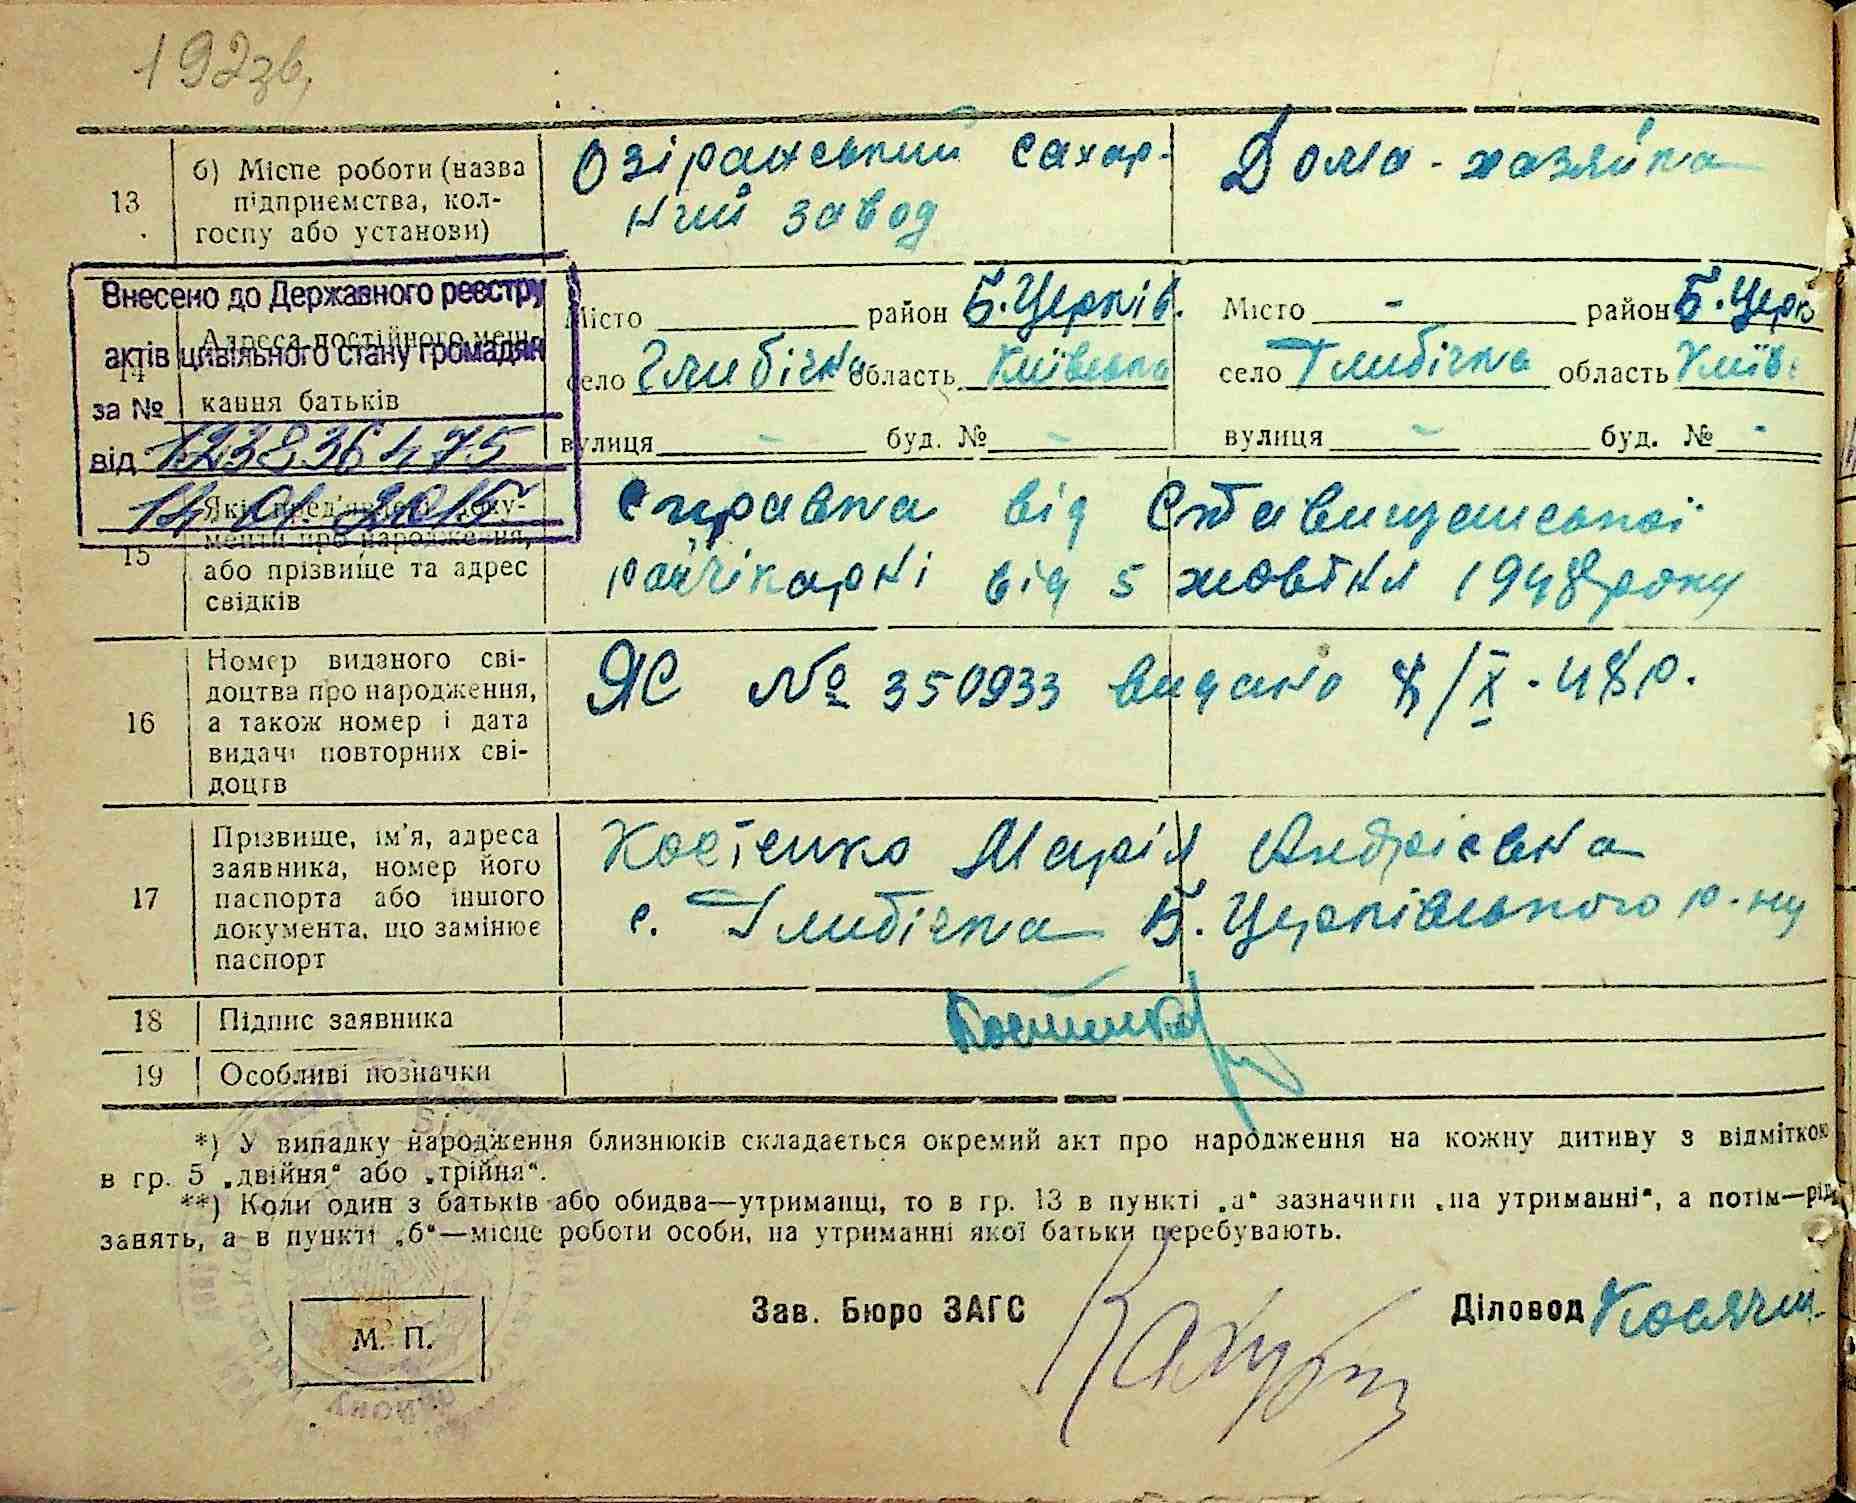 192зв,
13
б) Місце роботи (назва підприємства, кол-
госпу або установи)
Озірянський сахар-
ний завод
Дома-хазяйка
Внесено до Державного реєстру
актів цивільного стану громадян
за №
від 123836475
14 01 2015
14
Адреса постійного меш-
кання батьків
Місто район Б.Церків.
село Глибічка область Київська
вулиця - буд. № -
Місто - район Б.Церк
село Глибічка область Київ
вулиця - буд. № -
15
Які пред'явлені доку-
менти про народження,
або прізвище та адрес
свідків
Справка від Ставищанської
райлікарні від 5 жовтня 1948 року
16
Номер виданого сві-
доцтва про народження,
а також номер і дата
видачі повторних сві-
доцтв
ЯС № 350933 видано 8/X-48р.
17
Прізвище, ім'я, адреса
заявника, номер його
паспорта або іншого
документа, що замінює
паспорт
Костенко Марія Андрієвна
с. Глибічка Б.Церківського р-ну
18
Підпис заявника
Костенко
19
Особливі позначки
*) У випадку народження близнюків складається окремий акт про народження на кожну дитину з відміткою
в гр. 5 „двійня“ або „трійня“.
**) Коли один з батьків або обидва—утриманці, то в гр. 13 в пункті „а“ зазначити „на утриманні“, а потім—рід
занять, а в пункті „б“—місце роботи особи, на утриманні якої батьки перебувають.
М. П.
Зав. Бюро ЗАГС
Діловод